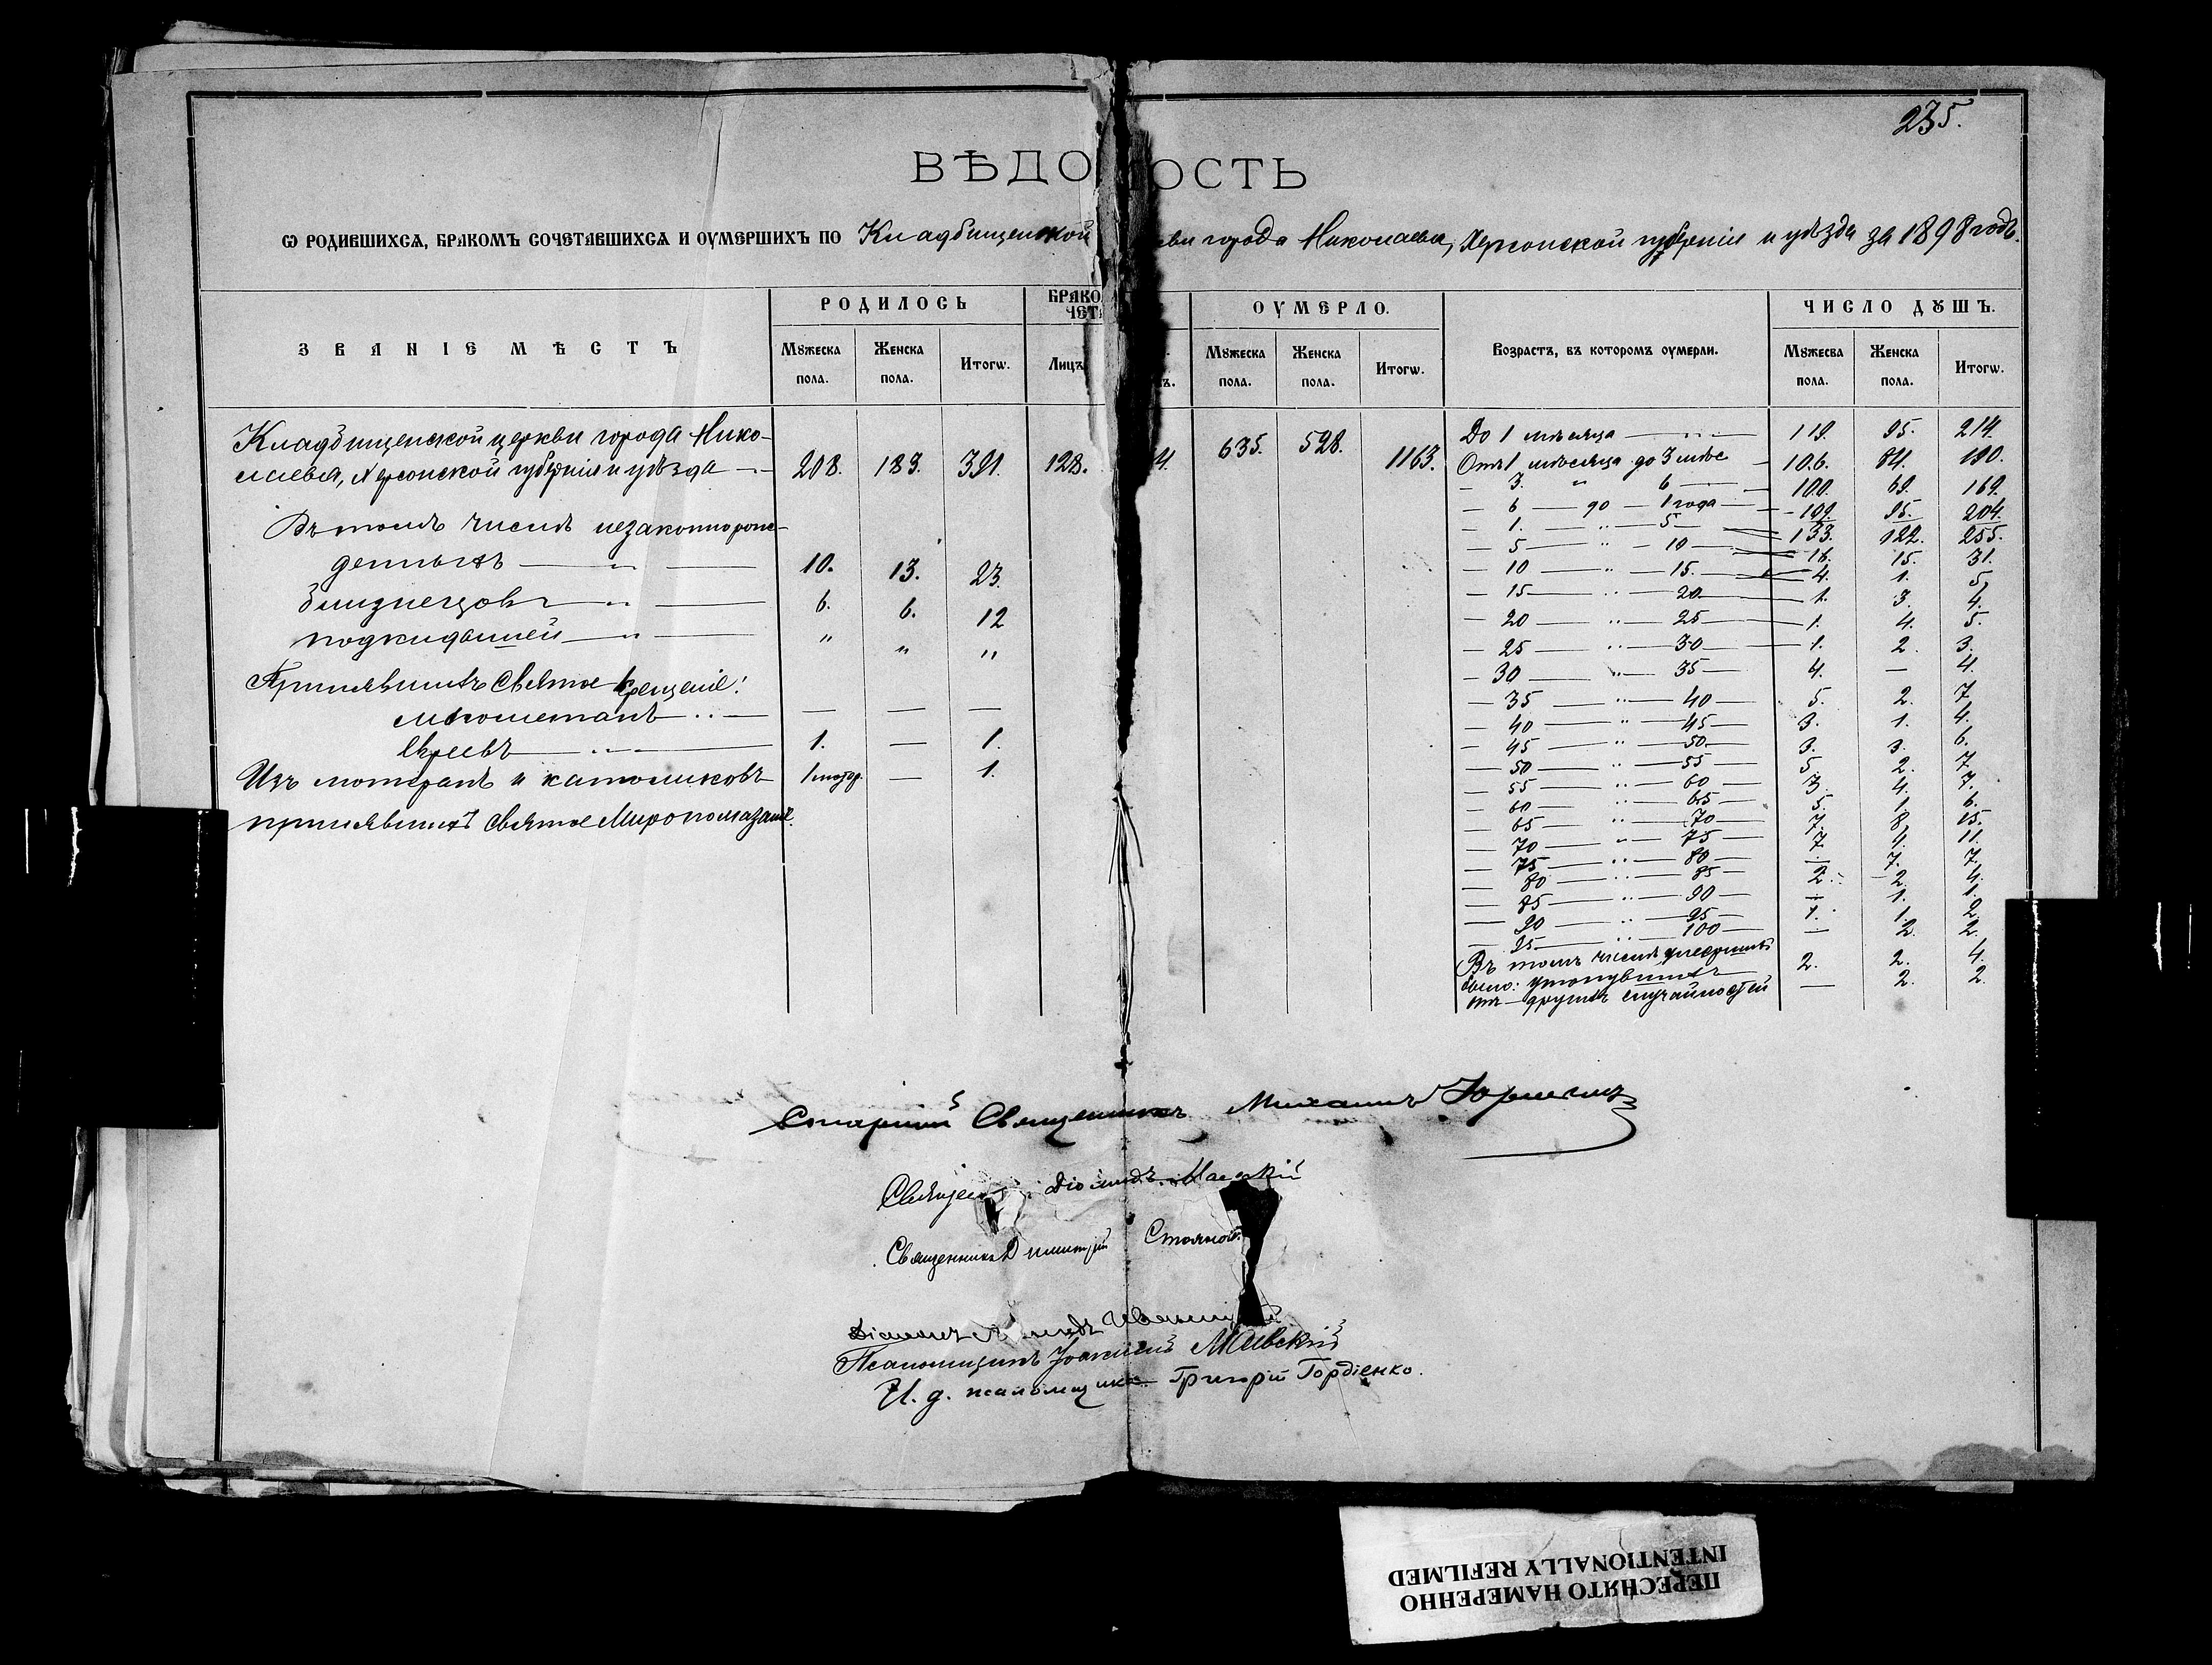 235.
ВѢДО ОСТЬ
Ѡ РОДИВШИХСѦ, БРАКОМЪ СОЧЕТАВШИХСѦ И ОУМЕРШИХЪ ПО Кладбищенской кви города Николаева, Херсонской губерніи и уѣзда за 1898 годъ.
ЗВАНІЕ МѢСТЪ
РОДИЛОСЬ
Мꙋжеска пола.
Женска пола.
Итогѡ.
БРАКО
ЧЕТА
Лицъ
ъ.
ОУМЕРЛО.
Мꙋжеска пола.
Женска пола.
Итогѡ.
Возрастъ, въ которомъ оумерли.
ЧИСЛО ДꙊШЪ.
Мꙋжесва пола.
Женска пола.
Итогѡ.
Кладбищенской церкви города Нико-
лаева, Херсонской губерніи и уѣзда — 208. 183. 391. 128. 4. 635. 528. 1163.
Въ томъ числѣ незаконнорож-
денныхъ — „ — 10. 13. 23.
близнецовъ — „ — 6. 6. 12
подкидышей — „ — „ „ „
Принявшихъ Святое Крещеніе:
магометанъ — „ — — — —
Евреевъ — „ — 1. — 1.
Изъ лютеранъ и католиковъ 1 — 1.
принявшихъ Святое Миропомазаніе.
До 1 мѣсяца — „ — 119. 95. 214.
Отъ 1 мѣсяца до 3 мѣс — 106. 84. 190.
— 3. „ 6 — 100. 69. 169.
— 6 — до — 1 года — 109. 95. 204.
— 1. — „ — 5 — 133. 122. 255.
— 5 — „ — 10 — 16. 15. 31.
— 10 — „ — 15. — 4. 1. 5.
— 15 — „ — 20. — 1. 3. 4.
— 20 — „ — 25 — 1. 4. 5.
— 25 — „ — 30 — 1. 2. 3.
— 30 — „ — 35 — 4. — 4.
— 35 — „ — 40 — 5. 2. 7.
— 40 — „ — 45 — 3. 1. 4.
— 45 — „ — 50. — 3. 3. 6.
— 50 — „ — 55 — 5. 2. 7.
— 55 — „ — 60 — 3. 4. 7.
— 60 — „ — 65 — 5. 1. 6.
— 65 — „ — 70 — 7. 8. 15.
— 70 — „ — 75 — 7. 4. 11.
— 75 — „ — 80 — — 7. 7.
— 80 — „ — 85 — 2. 2. 4.
— 85 — „ — 90 — — 1. 1.
— 90 — „ — 95 — 1. 1. 2.
— 95 — „ — 100 — — 2. 2.
Въ томъ числѣ умершихъ
было: утонувшихъ 2. 2. 4.
отъ другихъ случайностей — 2. 2.
Старшій Священникъ Михаилъ
Діомидъ
Священникъ Димитрій Стояновъ
Діаконъ
Псаломщикъ Іоакимъ Маевскій
И. д. псаломщика Григорій Гордіенко.
ПЕРЕСНЯТО НАМЕРЕННО
INTENTIONALLY REFILMED